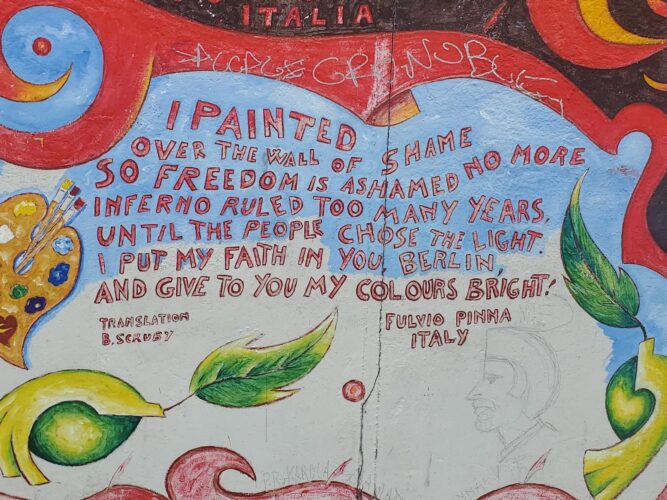 ITALIA
I PAINTED
OVER THE WALL OF SHAME
SO FREEDOM IS ASHAMED NO MORE
INFERNO RULED TOO MANY YEARS,
UNTIL THE PEOPLE CHOSE THE LIGHT.
I PUT MY FAITH IN YOU BERLIN,
AND GIVE TO YOU MY COLOURS BRIGHT!
TRANSLATION
B. SCRUBY
FULVIO PINNA
ITALY